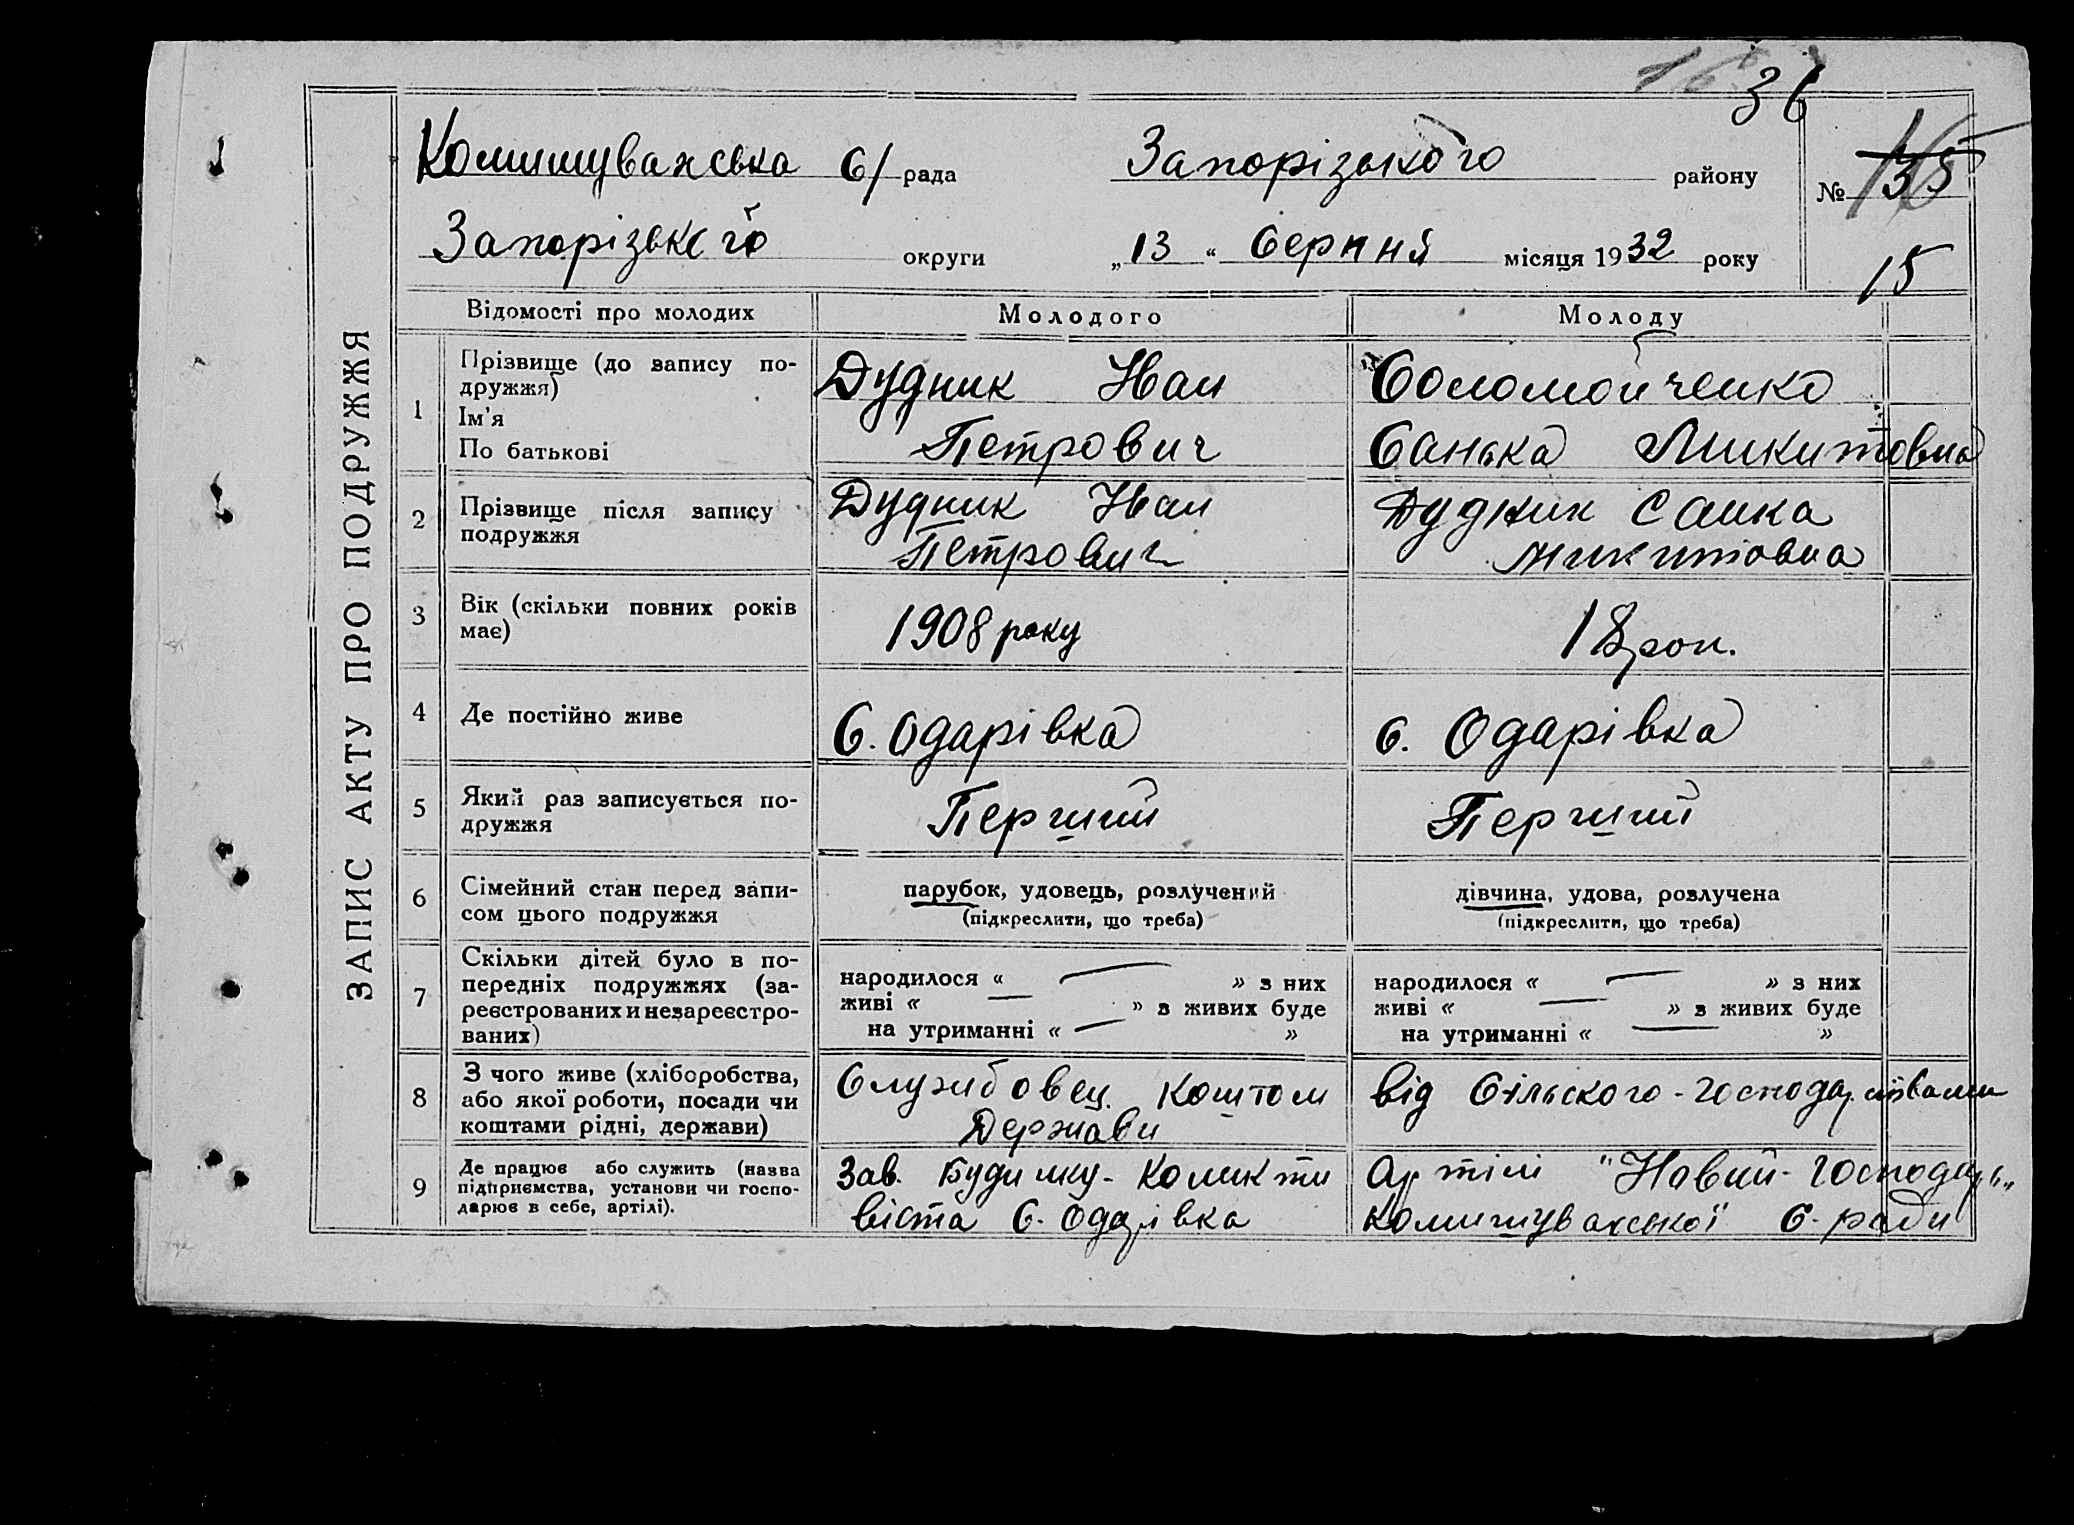 36
Комишуваська с/ рада Запорізького району № 35
Запорізького округи „13“ Серпня місяця 1932 року 15
ЗАПИС АКТУ ПРО ПОДРУЖЖЯ
Відомості про молодих Молодого Молоду
1 Прізвище (до запису по-
дружжя)
Ім'я
По батькові
Дудник Иван
Петрович
Соломойченко
Санька Микитовна
2 Прізвище після запису
подружжя
Дудник Иван
Петрович
Дудник Санка
Микитовна
3 Вік (скільки повних років
має)
1908 року
18 рок.
4 Де постійно живе
С. Одарівка
с. Одарівка
5 Який раз записується по-
дружжя
Перший
Перший
6 Сімейний стан перед запи-
сом цього подружжя
парубок, удовець, розлучений
(підкреслити, що треба)
дівчина, удова, розлучена
(підкреслити, що треба)
7 Скільки дітей було в по-
передніх подружжях (за-
реєстрованих и незареєстро-
ваних)
народилося « — » з них
живі « — » з живих буде
на утриманні « — »
народилося « — » з них
живі « — » з живих буде
на утриманні « — »
8 З чого живе (хліборобства,
або якої роботи, посади чи
коштами рідні, держави)
Службовец коштом
Держави
від Сільского-господарства
9 Де працює або служить (назва
підприємства, установи чи госпо-
дарює в себе, артілі).
Зав. Будинку-
С. Одарівка
Артілі "Новий-господарь„
Комишуваської С. ради